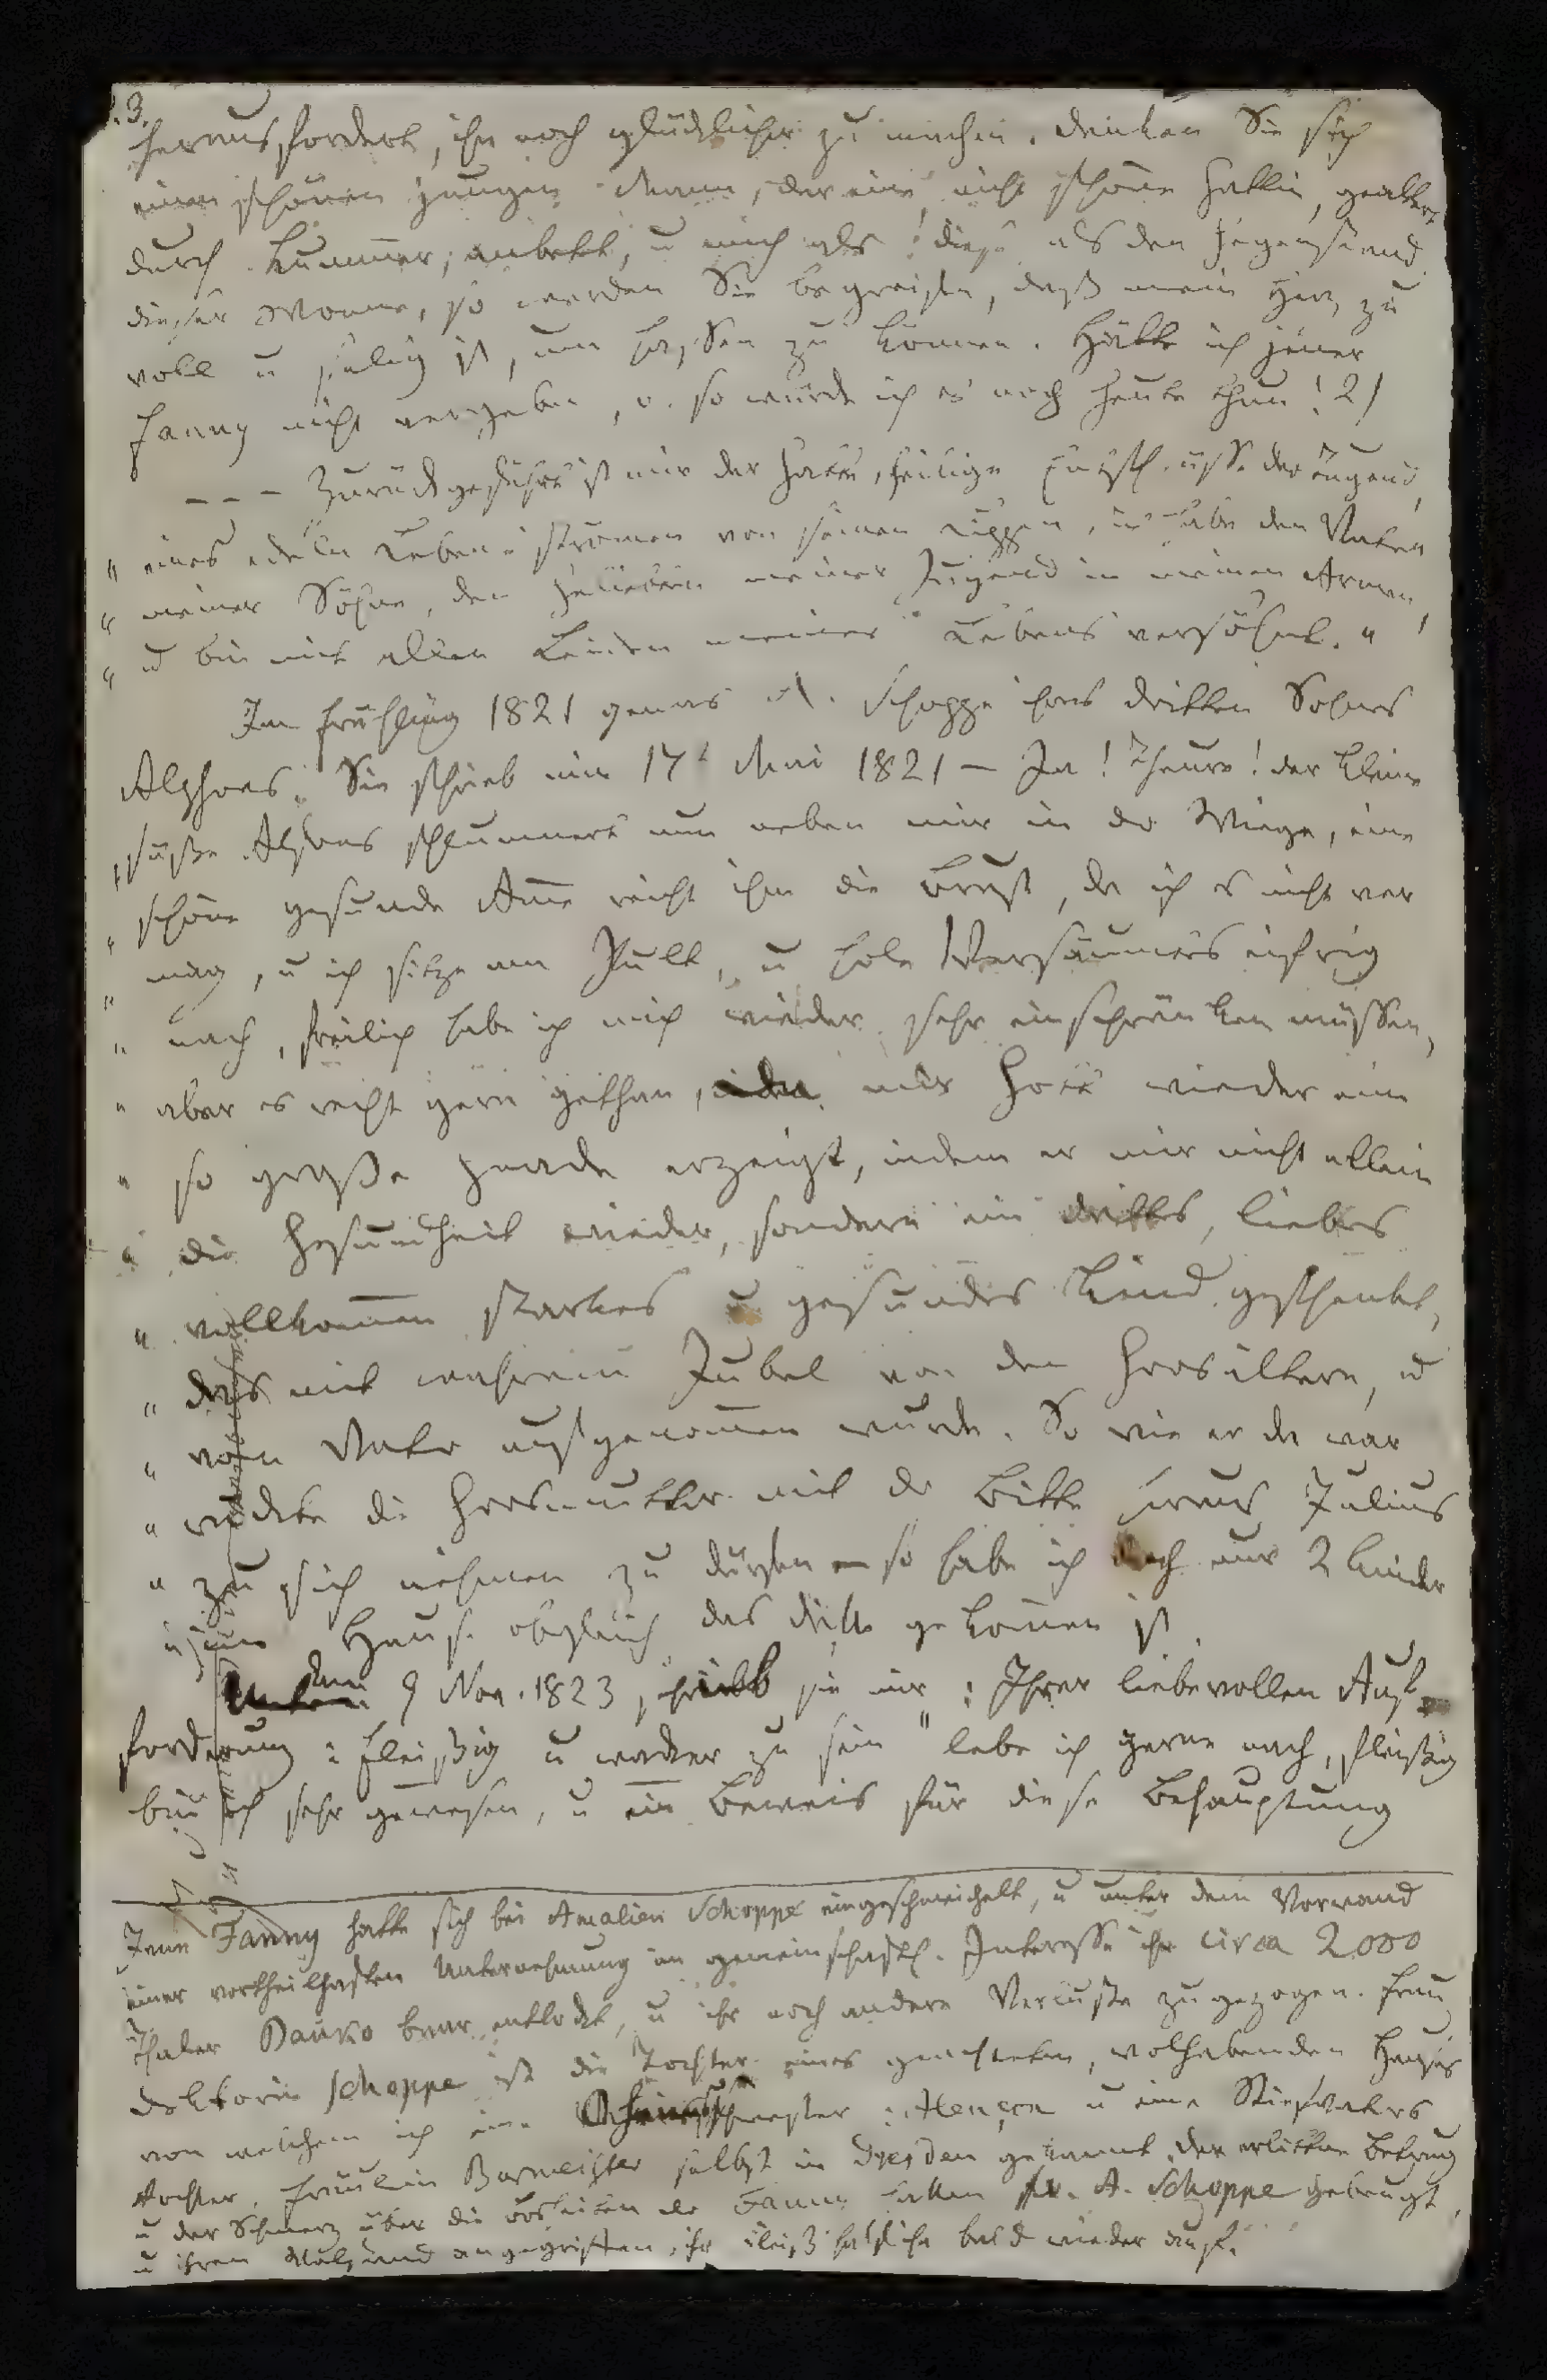 3.
herausfordert, ihn noch glücklicher zu machen. Denken Sie sich
einen schönen jungen Mann, der eine nicht schöne Gattin, gealtert
durch Kummer, anbetet, u mich als diese als den Gegenstand
dieser Wonne, so werden Sie begreifen, daß mein Herz zu
voll u seelig ist, um hassen zu können. Hätte ich jener
Fanny nicht vergeben, o. so würde ich es noch heute thun! 2)
– – – Zurückgeführt ist mir der Gatte, heilige Entschlüsse der Tugend,
" eines edeln Lebens strömen von seinen Lippen, ich habe den Vater
" meiner Söhne, den Geliebten meiner Jugend in meinen Armen,
" u bin mit allen Leiden meines Lebens versöhnt. "
Im Frühling 1821 genas A. Schoppe ihres dritten Sohnes
Alphons. Sie schrieb mir 17t Mai 1821 – Ja! Theure! der kleine
" süße Alphons schlummert nun neben mir in der Wiege, eine
" schöne gesunde Amme reicht ihm die Brust, da ich es nicht ver
" mag, u ich sitze am Pult, u hole Versäumtes eifrig
" nach, freilich habe ich mich wieder sehr einschränken müssen,
" aber es recht gern gethan, mir Gott wieder eine
" so große Gnade erzeigt, indem er mir nicht allein
" die Gesundheit wieder, sondern ein drittes, liebes
" vollkommen starkes u gesundes Kind geschenkt,
" das mit wahrem Jubel von den Groseltern, u
" vom Vater aufgenommen wurde. So wie er da war
" rückte die Grosmutter mit der Bitte heraus Julius
" zu sich nehmen zu dürfen – so habe ich doch nur 2 Kinder
" im Hause obgleich das dritte gekommen ist.
Den 9 Nov. 1823, schrieb sie mir: Ihrer liebevollen Auf-
forderung: fleißig u wacker zu sein " lebe ich gerne nach, fleißig
bin ich sehr gewesen, u ein Beweis für diese Behauptung
Jene Fanny hatte sich bei Amalien Schoppe eingeschmeichelt, u unter dem Vorwand
einer vortheilhaften Unternehmung im gemeinschaftl. Interesse ihr circa 2000
Thaler Banko baar entlockt, u ihr noch andere Verluste zugezogen. Frau
Doktorin Schoppe ist die Tochter eines geachteten, wolhabenden Hauses
von welchem ich eine u eine Stiefvaters
tochter, Fräulein Burmeister selbst in Dresden gekannt. der erlittene Betrug
u der Schmerz über die Bosheiten der Fanny hatten Fr. A. Schoppe gebeugt,
u ihren Wolstand angegriffen, ihr Fleiß half ihr bald wieder auf.